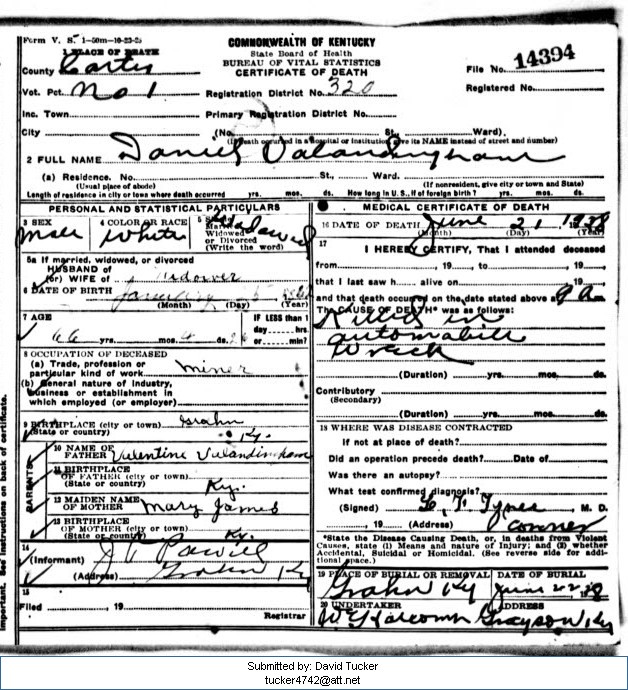 Form V. S. 1-50m-10-23-25
COMMONWEALTH OF KENTUCKY
State Board of Health
BUREAU OF VITAL STATISTICS
CERTIFICATE OF DEATH
1 PLACE OF DEATH
County Carter
File No. 14394
Vot. Pct. No 1
Registration District No. 320
Registered No.
Inc. Town
Primary Registration District No.
City (No. St. Ward).
(If death occurred in a hospital or institution give its NAME instead of street and number)
2 FULL NAME Daniel Valandingham
(a) Residence. No. St., Ward.
(Usual place of abode) (If nonresident, give city or town and State)
Length of residence in city or town where death occurred yrs. mos. ds. How long in U. S., if of foreign birth? yrs. mos. ds.
PERSONAL AND STATISTICAL PARTICULARS
3 SEX Male
4 COLOR OR RACE White
5 Single Married Widowed or Divorced (Write the word) Widowed
5a If married, widowed, or divorced
HUSBAND of
(or) WIFE of Widower
6 DATE OF BIRTH January
(Month) (Day) (Year)
7 AGE 66 yrs. mos. ds.
IF LESS than 1 day hrs. or min?
8 OCCUPATION OF DECEASED
(a) Trade, profession or particular kind of work Miner
(b) General nature of Industry, business or establishment in which employed (or employer)
9 BIRTHPLACE (city or town) Grahn
(State or country) Ky.
PARENTS
10 NAME OF FATHER Valentine Valandingham
11 BIRTHPLACE OF FATHER (city or town)
(State or country) Ky.
12 MAIDEN NAME OF MOTHER Mary James
13 BIRTHPLACE OF MOTHER (city or town)
(State or country) Ky.
14 (Informant)
(Address) Grahn Ky
15 Filed , 19 Registrar
MEDICAL CERTIFICATE OF DEATH
16 DATE OF DEATH June 21, 1938
(Month) (Day) (Year)
17 I HEREBY CERTIFY, That I attended deceased
from , 19 , to , 19 ,
that I last saw h alive on , 19 ,
and that death occurred on the date stated above at 9 a m.
The CAUSE OF DEATH* was as follows:
Killed in
automobile
wreck
(Duration) yrs. mos. ds.
Contributory
(Secondary)
(Duration) yrs. mos. ds.
18 WHERE WAS DISEASE CONTRACTED
If not at place of death?
Did an operation precede death? Date of
Was there an autopsy?
What test confirmed diagnosis?
(Signed) M. D.
, 19 (Address)
*State the Disease Causing Death, or, in deaths from Violent
Causes, state (1) Means and nature of Injury; and (2) whether
Accidental, Suicidal or Homicidal. (See reverse side for addi-
tional space.)
19 PLACE OF BURIAL OR REMOVAL Grahn Ky
DATE OF BURIAL June 22 38
20 UNDERTAKER
ADDRESS Grayson Ky
Important. See instructions on back of certificate.
Submitted by: David Tucker
tucker4742@att.net